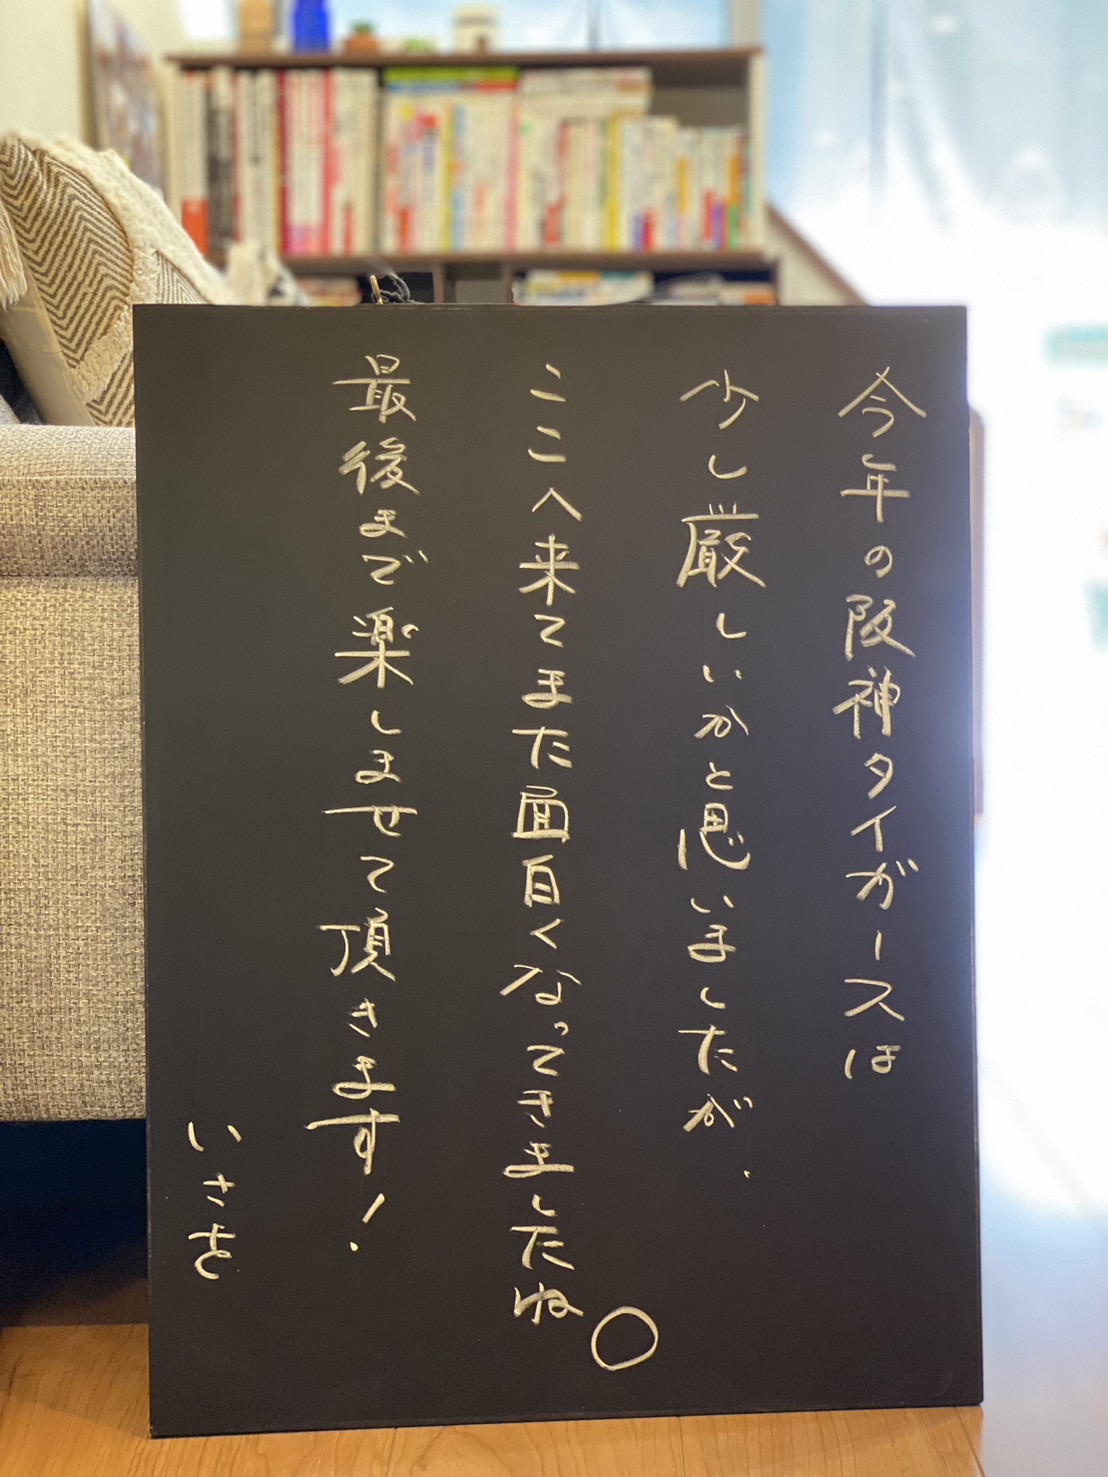 今年の阪神タイガースは
少し厳しいかと思いましたが、
ここへ来てまた面白くなってきましたね。
最後まで楽しませて頂きます!
いさを